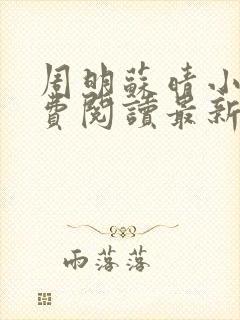 周明蘇晴小
費閱讀最新
雨落落